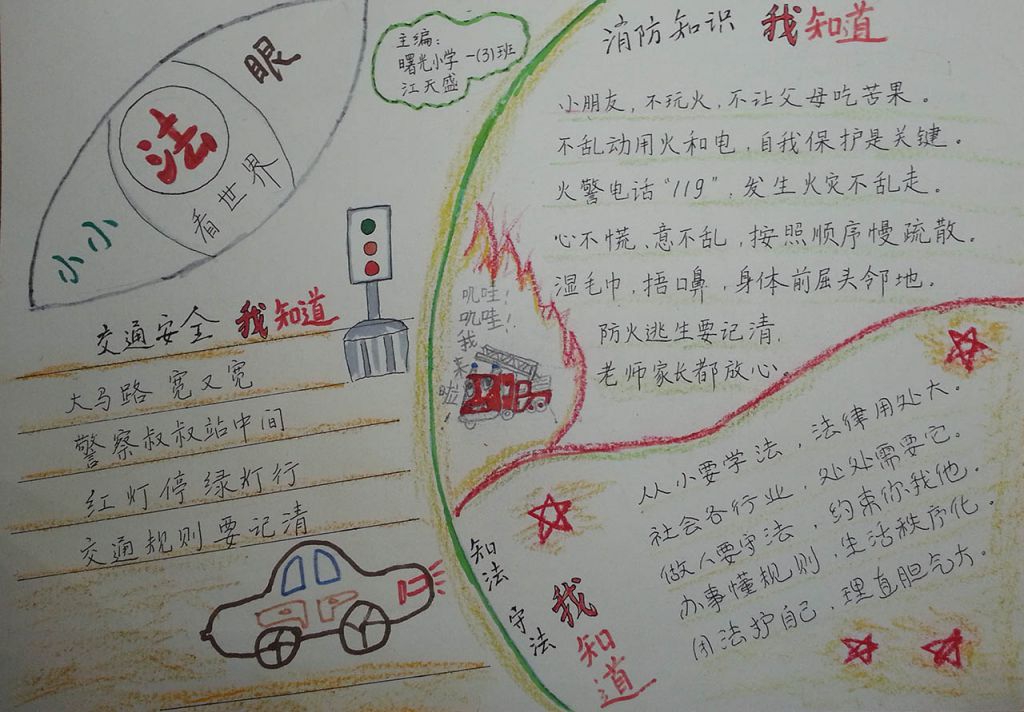 小小
法
眼
看世界
主编：
曙光小学一(3)班
江天盛
交通安全 我知道
大马路宽又宽
警察叔叔站中间
红灯停绿灯行
交通规则要记清
消防知识 我知道
小朋友，不玩火，不让父母吃苦果。
不乱动用火和电，自我保护是关键。
火警电话“119”，发生火灾不乱走。
心不慌、意不乱，按照顺序慢疏散。
湿毛巾，捂口鼻，身体前屈头邻地。
防火逃生要记清，
老师家长都放心。
叽哇！
叽哇！
我
来
啦
！
知法 守法 我知道
从小要学法，法律用处大。
社会各行业，处处需要它。
做人要守法，约束你我他。
办事懂规则，生活秩序化。
用法护自己，理直胆气大。